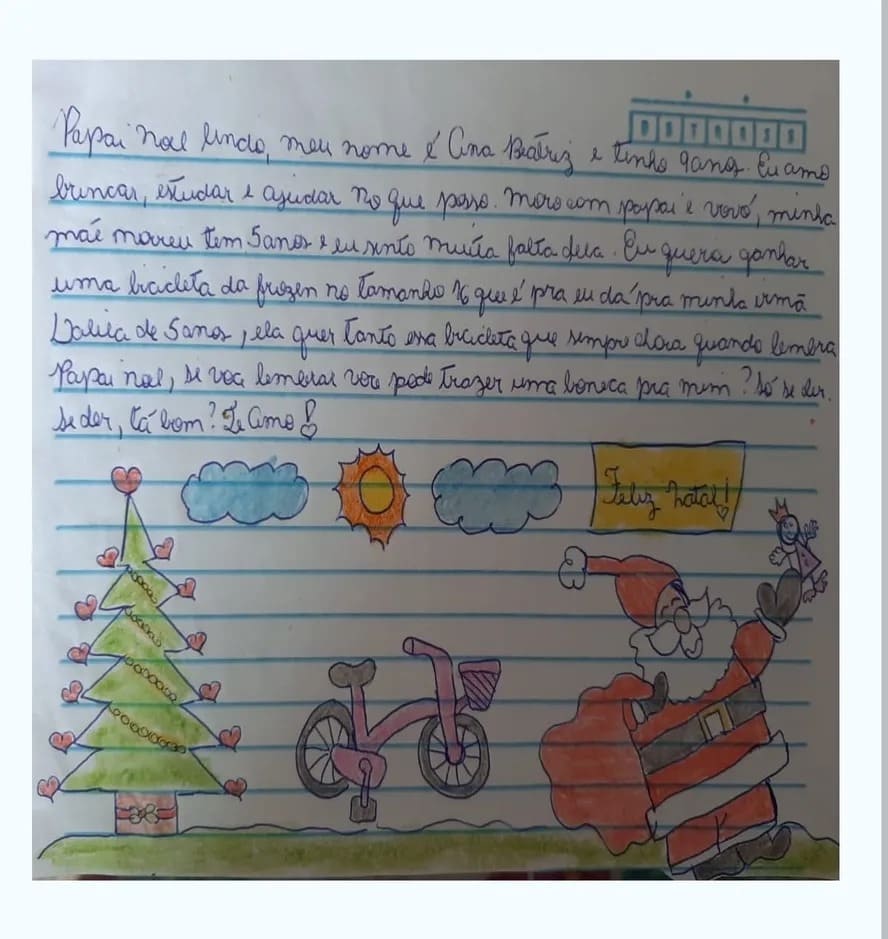 D S T Q Q S S
Papai Noel lindo, meu nome é Ana Beátriz e tenho 9 anos. Eu amo
brincar, estudar e ajudar no que posso. Moro com papai e vovó, minha
mãe morreu tem 5 anos e eu sinto muita falta dela. Eu queria ganhar
uma bicicleta da frozen no tamanho 16 que é pra eu dá pra minha irmã
Dalila de 5 anos, ela quer tanto essa bicicleta que sempre chora quando lembra
Papai Noel, se você lembrar você pode trazer uma boneca pra mim? Só se der.
se der, tá bom? Te Amo!
Feliz Natal!